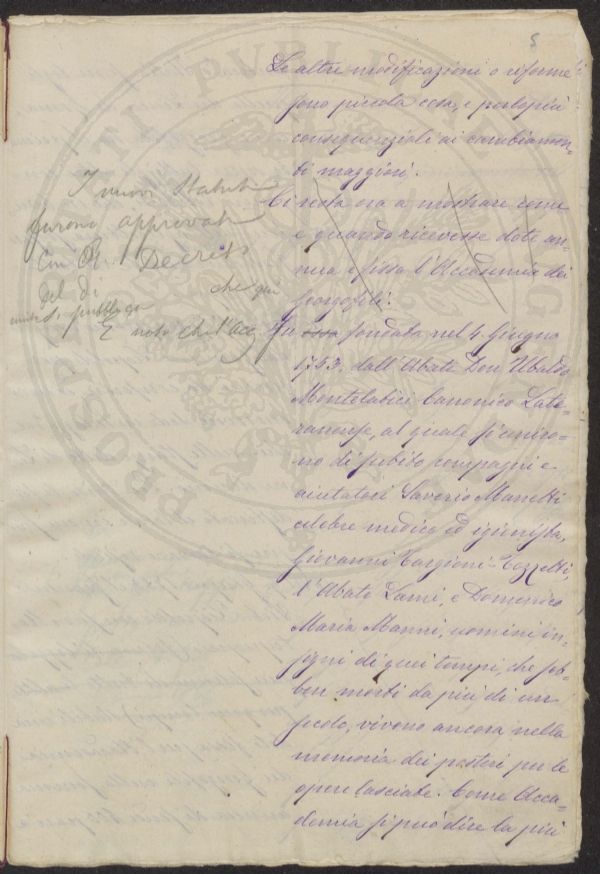 5
Le altre modificazioni o riforme
sono piccola cosa, e perlopiù
consequenziali ai cambiamen-
ti maggiori.
Ci resta ora a mostrare come
e quando ricevesse dote an-
nua e fissa l'Accademia dei
Georgofili.
I nuovi Statuti
furono approvati
con R. Decreto
del dì
che qui
pubblica
È noto che l'Acc
Fu essa fondata nel 4 Giugno
1753. dall'Abate Don Ubaldo
Montelatici Canonico Late-
ranense, al quale si uniro-
no di subito compagni e
aiutatori Saverio Manetti
celebre medico ed igienista,
Giovanni Targioni-Tozzetti,
l'Abate Lami, e Domenico
Maria Manni, uomini in-
signi di quei tempi, che seb-
ben morti da più di un
secolo, vivono ancora nella
memoria dei posteri per le
opere lasciate. Come Acca-
demia si può dire la più
PROSPERITATI PUBLICAE